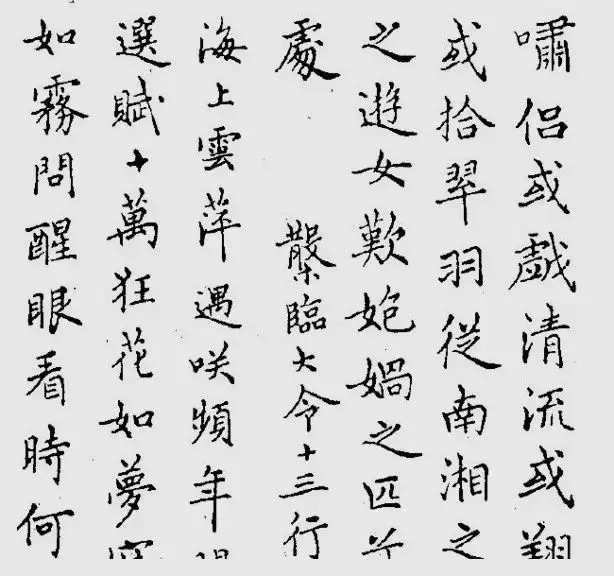 嘯侣或戲清流或翔
或拾翠羽從南湘之
之遊女歎媧之匹兮
處 臨大令十三行
海上雲萍遇咲頻年
選賦十萬狂花如夢
如霧問醒眼看時何